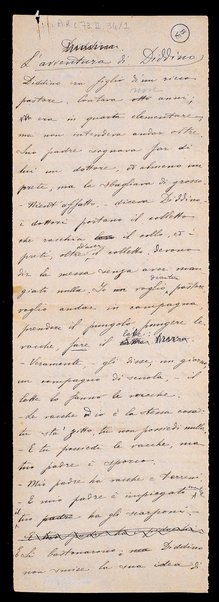 A.R. 1.73 II 34/1
L'avventura di Diddino
Diddino era figlio di un ricco
pastore, contava nove anni;
era in quarta elementare,
ma non intendeva andar oltre.
Suo padre sognava far di
lui un dottore, od almeno un
prete, ma la sbagliava di grosso
- Nient'affatto, - diceva Diddino,
i dottori portano il colletto
che raschia il collo, ed i
preti, oltre il colletto, devono
dir la messa senza aver man
giato nulla. Io no voglio, pastore
voglio andar in campagna
prendere il pungolo, pungere le
vacche fare il latte
- Veramente, gli disse, un giorno
un compagno di scuola, - il
latte lo fanno le vacche.
- Le vacche ed io è la stessa cosa:
tu sta' zitto, tu non possiedi nulla
- E tu possiedi le vacche, ma
tuo padre è sporco.
- Mio padre ha vacche e terreni
- E mio padre è impiegato
tuo padre ha gli scarponi.
Si bastonarono, ma Diddino
non smise la sua idea di